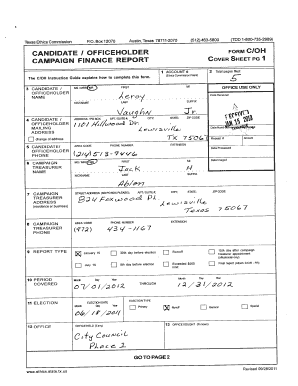 Texas Ethics Commission P.O. Box 12070 Austin, Texas 78711-2070 (512) 463-5800 (TDD 1-800-735-2989)
CANDIDATE / OFFICEHOLDER
CAMPAIGN FINANCE REPORT
FORM C/OH
COVER SHEET PG 1
The C/OH Instruction Guide explains how to complete this form.
1 ACCOUNT #
(Ethics Commission Filers)
2 Total pages filed:
5
3 CANDIDATE /
OFFICEHOLDER
NAME
MS / MRS / MR FIRST MI
Leroy
NICKNAME LAST SUFFIX
Vaughn Jr.
OFFICE USE ONLY
Date Received
JAN 15 2013
4 CANDIDATE /
OFFICEHOLDER
MAILING
ADDRESS
change of address
ADDRESS / PO BOX; APT / SUITE #; CITY; STATE; ZIP CODE
1101 Hillwood Dr.
Lewisville
TX 75067
5 CANDIDATE/
OFFICEHOLDER
PHONE
AREA CODE PHONE NUMBER EXTENSION
(214) 513-9446
Receipt # Amount
Date Processed
Date Imaged
6 CAMPAIGN
TREASURER
NAME
MS / MRS / MR FIRST MI
Jack H
NICKNAME LAST SUFFIX
Ablon
7 CAMPAIGN
TREASURER
ADDRESS
(residence or business)
STREET ADDRESS (NO PO BOX PLEASE); APT / SUITE #; CITY; STATE; ZIP CODE
824 Foxwood Pl Lewisville
Texas 75067
8 CAMPAIGN
TREASURER
PHONE
AREA CODE PHONE NUMBER EXTENSION
(972) 434-1167
9 REPORT TYPE
January 15 30th day before election Runoff 15th day after campaign
treasurer appointment
(officeholder only)
July 15 8th day before election Exceeded $500
limit Final report (Attach C/OH - FR)
10 PERIOD
COVERED
Month Day Year Month Day Year
07/01/2012 THROUGH 12/31/2012
11 ELECTION
ELECTION DATE
Month Day Year
06/18/2011
ELECTION TYPE
Primary Runoff General Special
12 OFFICE
OFFICE HELD (if any)
City Council
Place 2
13 OFFICE SOUGHT (if known)
GO TO PAGE 2
www.ethics.state.tx.us Revised 09/28/2011